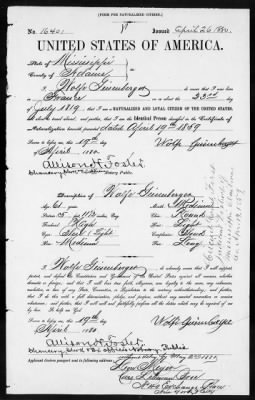 [FORM FOR NATURALIZED CITIZEN.]
No. 16401 Issued April 26 1880.
UNITED STATES OF AMERICA.
State of Mississippi
County of Adams
I, Wolfe Geisenberger, do swear that I was
born in France on the 22nd of
July 1819; that I am a NATURALIZED AND LOYAL CITIZEN OF THE UNITED STATES,
and about to travel abroad; and further, that I am the identical Person described in the Certificate of
Naturalization herewith presented dated April 19th 1859
Sworn to before me this 19th Wolfe Geisenberger
day of April 1880.
Allison H. Foster
Notary Public.
Description of Wolfe Geisenberger
Age 61 years Mouth Medium
Stature 5 ft 11½ inches, Eng. Chin Round
Forehead High Hair Light
Eyes Light Complexion
Nose Medium Face Long
I, Wolfe Geisenberger, do solemnly swear that I will support,
protect, and defend the Constitution and Government of the United States against all enemies, whether
domestic or foreign; and that I will bear true faith, allegiance, and loyalty to the same, any ordinance,
resolution, or law of any State, Convention, or Legislature to the contrary notwithstanding; and further,
that I do this with a full determination, pledge, and purpose, without any mental reservation or evasion
whatsoever; and further, that I will well and faithfully perform all the duties which may be required of me
by law. So help me God.
Sworn to before me this 19th Wolfe Geisenberger
day of April 1880
Allison H. Foster
Notary Public
Applicant desires passport to be sent to following address:
Exchange Place
New York City